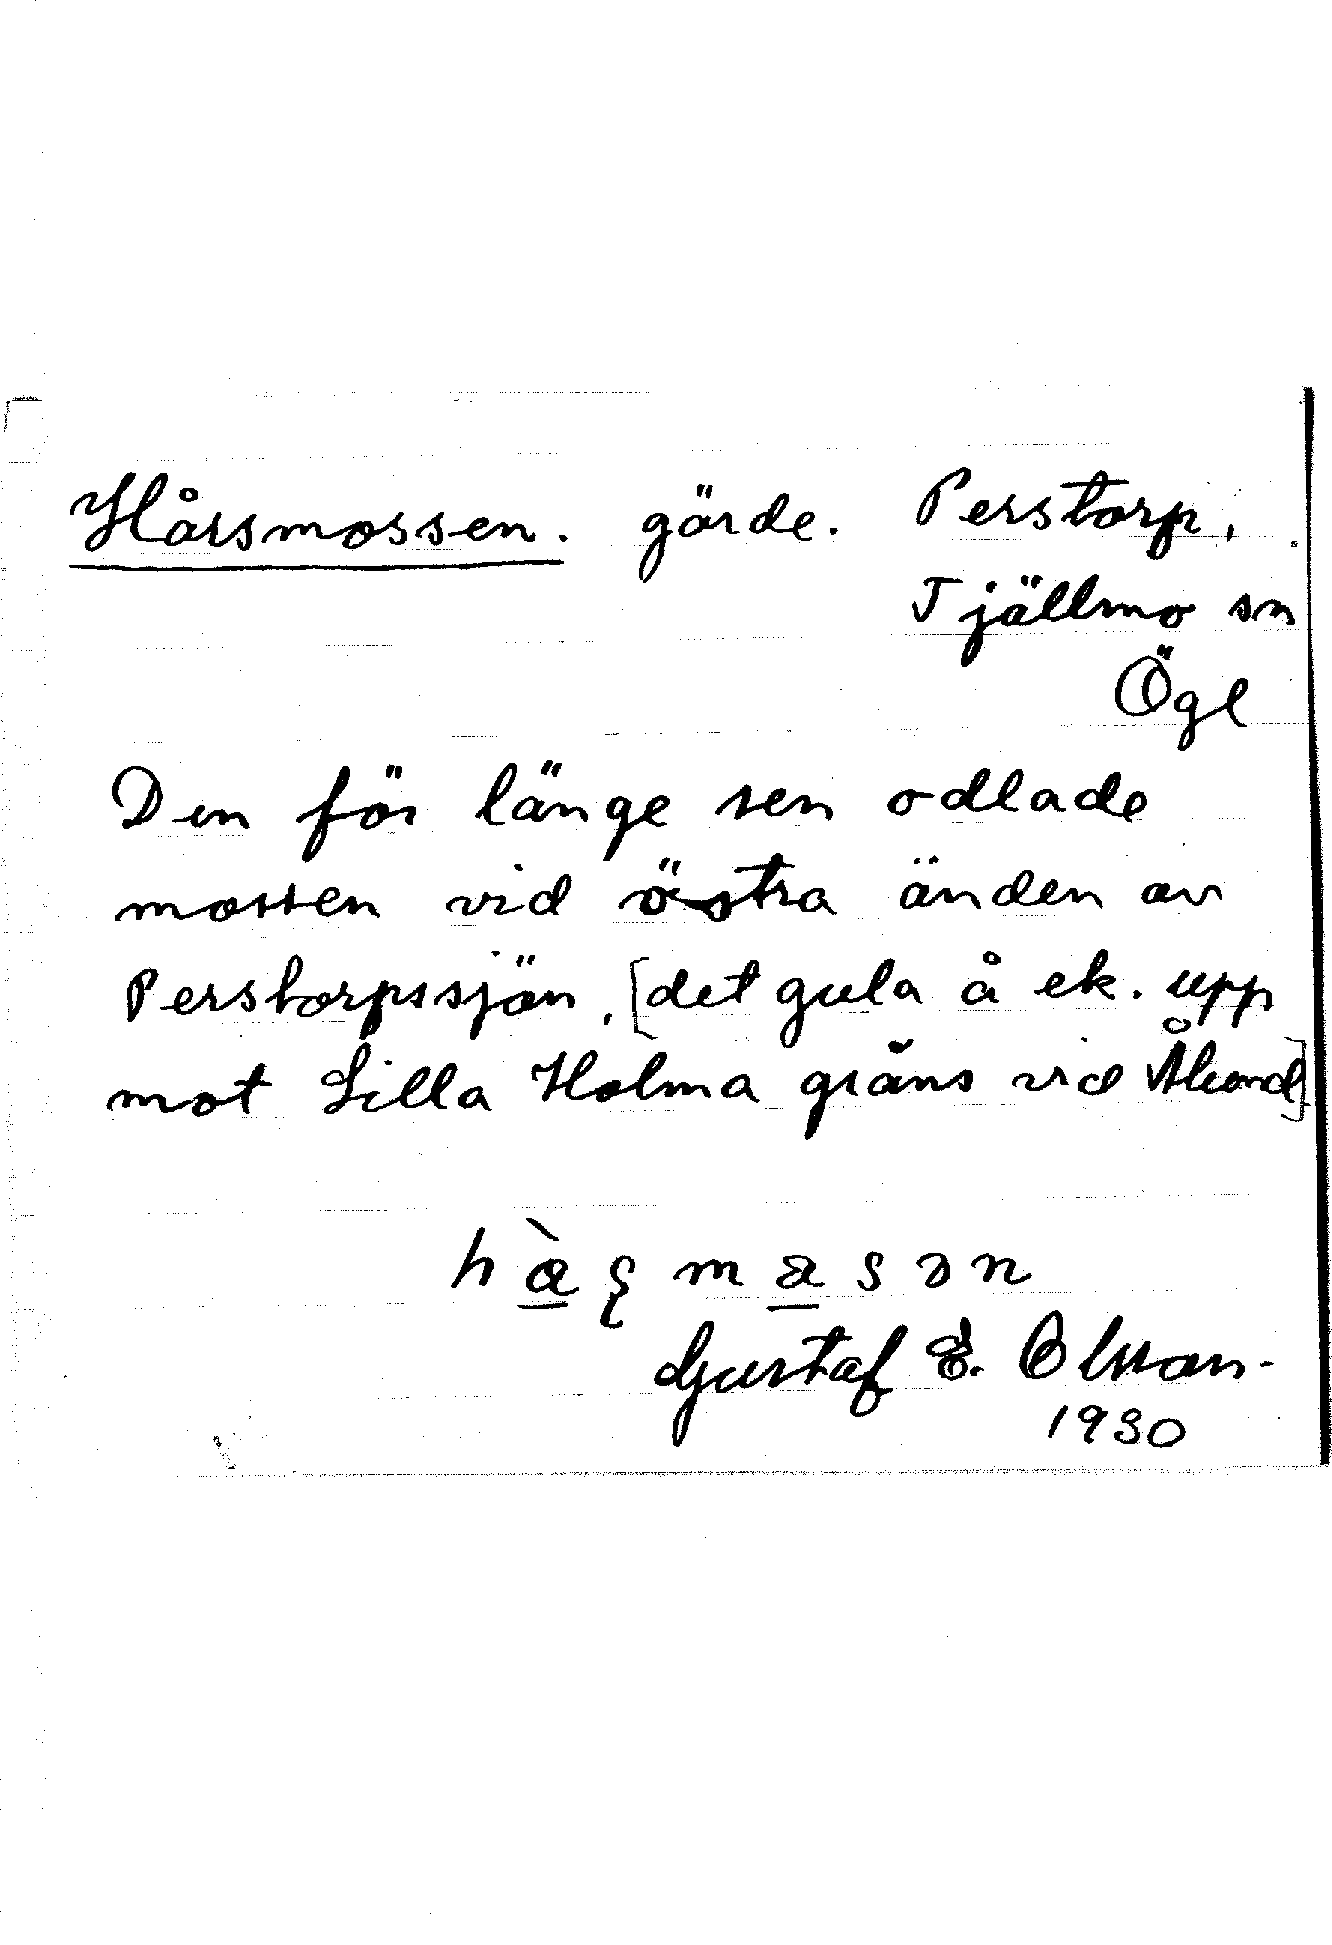 Hårsmossen. gärde. Perstorp,
Tjällmo sn
Ögl
Den för länge sen odlade
mossen vid östra änden av
Perstorpssjön, [det gula å ek. upp
mot Lilla Holma gräns vid]
Gustaf E. Olsson.
1930